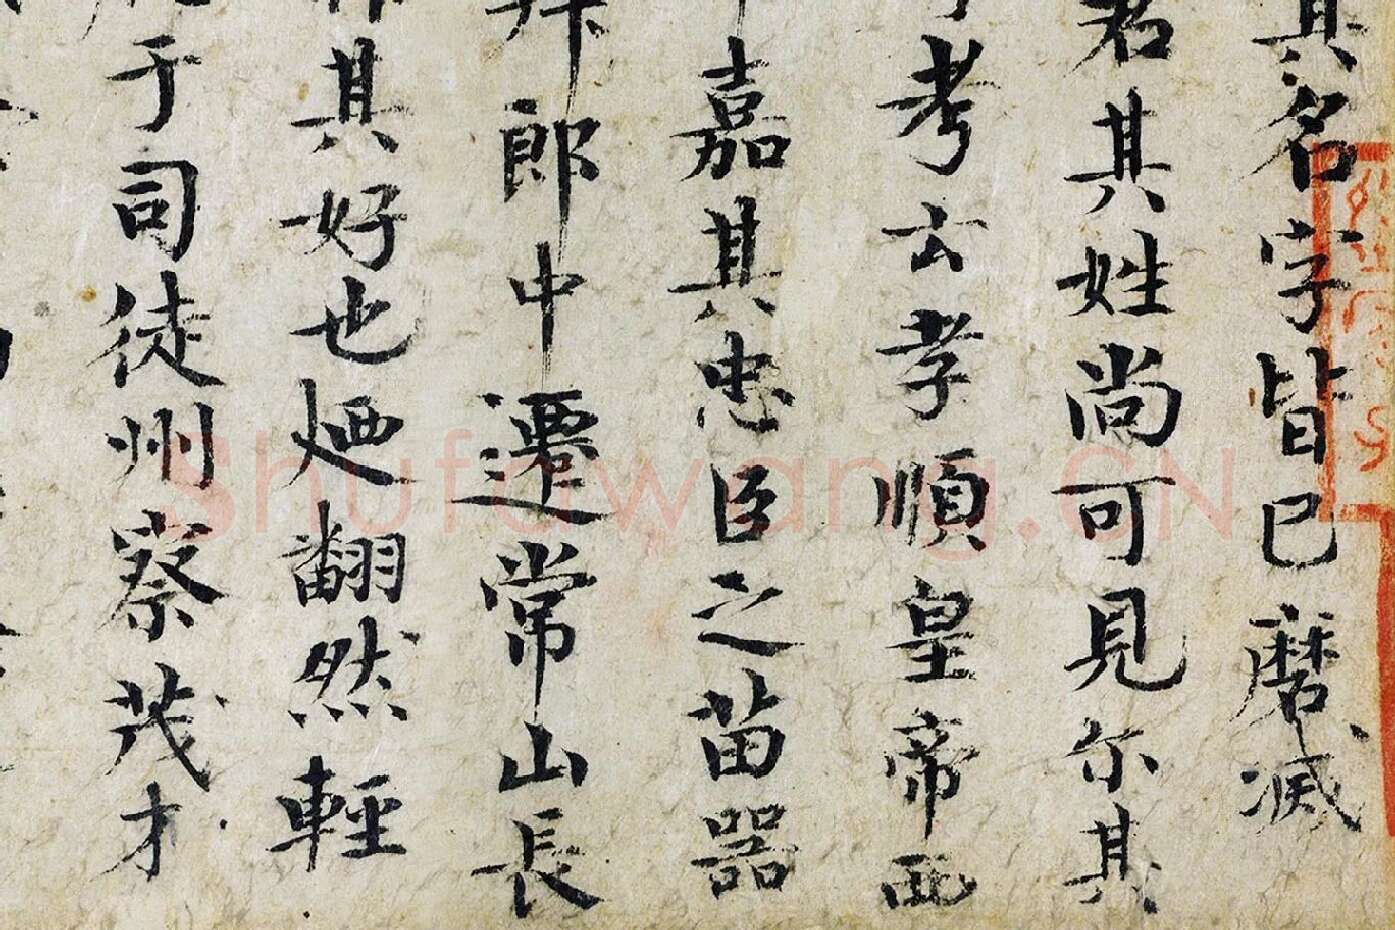 其名字皆已磨滅
君其姓尚可見尔其
考玄孝順皇帝西
嘉其忠臣之苗器
拜郎中遷常山長
其好也廼翻然輕
于司徒州察茂才
Shufawang.CN